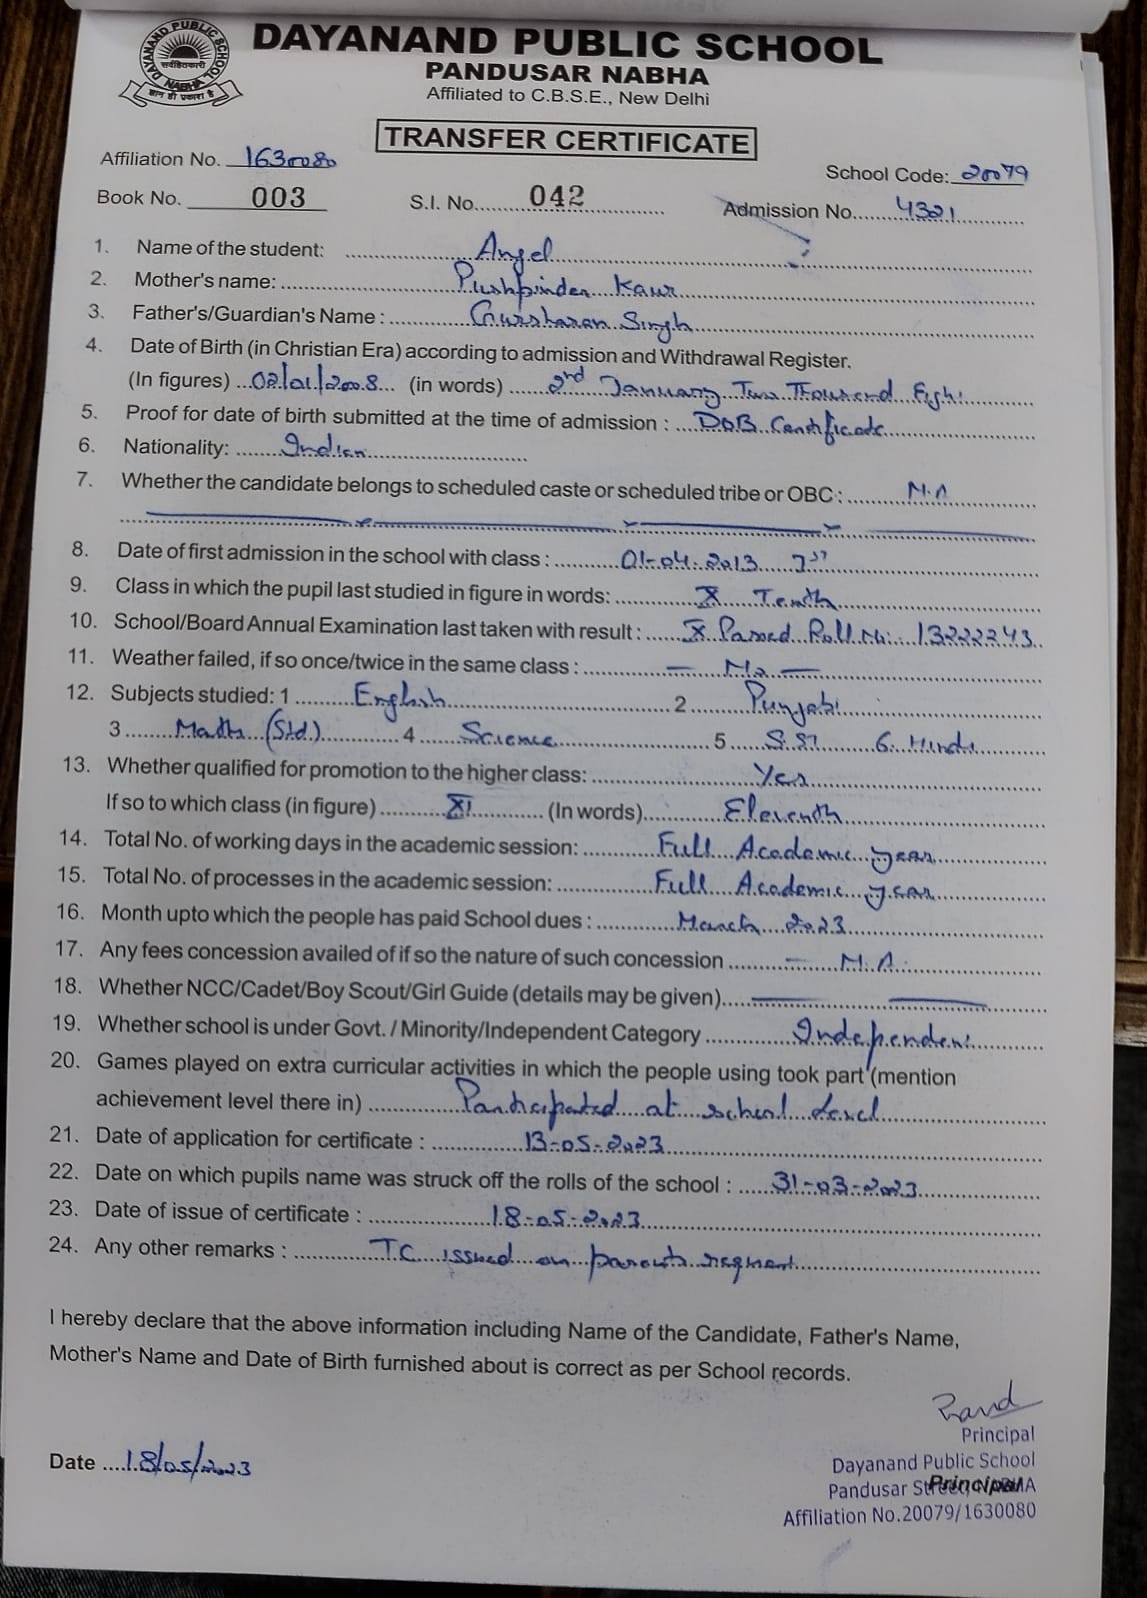 DAYANAND PUBLIC SCHOOL
DAYANAND PUBLIC SCHOOL
सर्वहितकारी
NABHA
ज्ञान ही प्रकाश है
PANDUSAR NABHA
Affiliated to C.B.S.E., New Delhi
TRANSFER CERTIFICATE
Affiliation No. 1630080
School Code: 20079
Book No. 003 S.I. No. 042 Admission No. 4321
1. Name of the student: Angel
2. Mother's name: Pushpinder Kaur
3. Father's/Guardian's Name : Gursharan Singh
4. Date of Birth (in Christian Era) according to admission and Withdrawal Register.
(In figures) 02/01/2008 (in words) 2nd January Two Thousand Eight
5. Proof for date of birth submitted at the time of admission : DOB Certificate
6. Nationality: Indian
7. Whether the candidate belongs to scheduled caste or scheduled tribe or OBC : N.A
8. Date of first admission in the school with class : 01-04-2013
9. Class in which the pupil last studied in figure in words: X Tenth
10. School/Board Annual Examination last taken with result : X Passed Roll No: 13222243
11. Weather failed, if so once/twice in the same class : — No —
12. Subjects studied: 1 English 2 Punjabi
3 Maths (Std.) 4 Science 5 S.ST 6. Hindi
13. Whether qualified for promotion to the higher class: Yes
If so to which class (in figure) XI (In words) Eleventh
14. Total No. of working days in the academic session: Full Academic year
15. Total No. of processes in the academic session: Full Academic year
16. Month upto which the people has paid School dues : March 2023
17. Any fees concession availed of if so the nature of such concession — N.A.
18. Whether NCC/Cadet/Boy Scout/Girl Guide (details may be given)
19. Whether school is under Govt. / Minority/Independent Category Independent
20. Games played on extra curricular activities in which the people using took part (mention
achievement level there in) Participated at school level
21. Date of application for certificate : 13-05-2023
22. Date on which pupils name was struck off the rolls of the school : 31-03-2023
23. Date of issue of certificate : 18-05-2023
24. Any other remarks : TC issued on parents request
I hereby declare that the above information including Name of the Candidate, Father's Name,
Mother's Name and Date of Birth furnished about is correct as per School records.
Principal
Date 18/05/2023
Dayanand Public School
Pandusar Street, NABHA
Principal
Affiliation No.20079/1630080